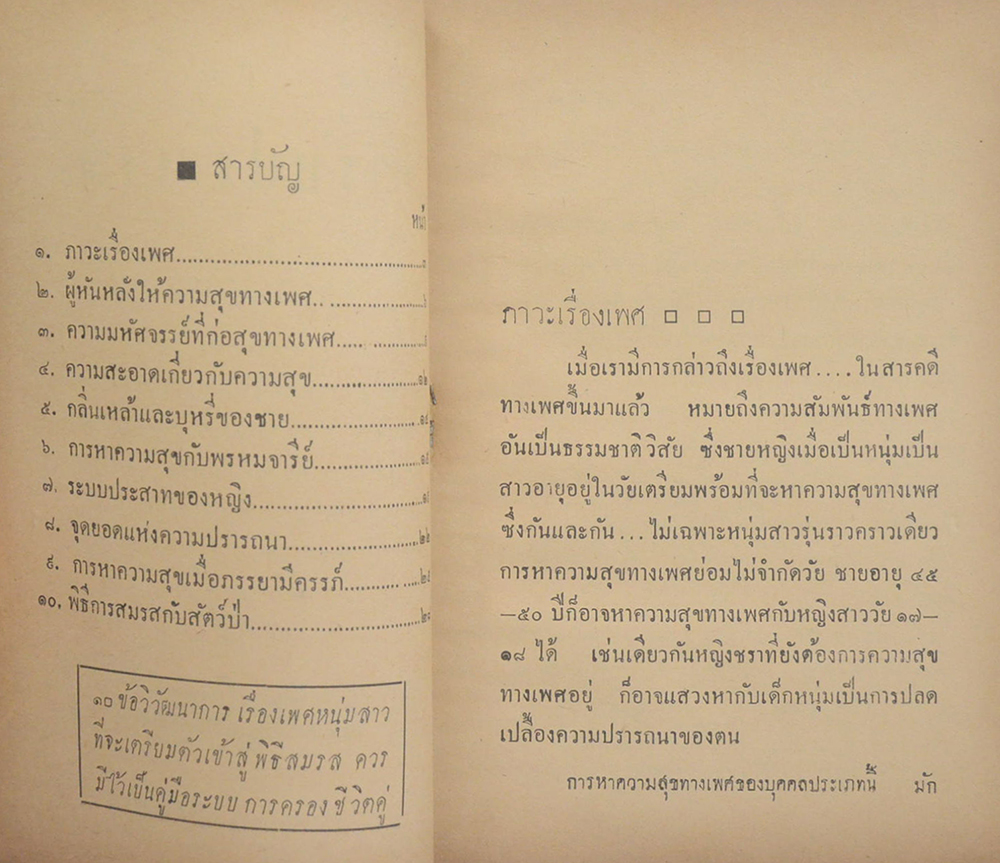 ■ สารบัญ
หน้า
๑. ภาวะเรื่องเพศ
๒. ผู้หันหลังให้ความสุขทางเพศ
๓. ความมหัศจรรย์ที่ก่อสุขทางเพศ
๔. ความสะอาดเกี่ยวกับความสุข
๕. กลิ่นเหล้าและบุหรี่ของชาย
๖. การหาความสุขกับพรหมจารีย์
๗. ระบบประสาทของหญิง
๘. จุดยอดแห่งความปรารถนา
๙. การหาความสุขเมื่อภรรยามีครรภ์
๑๐. พิธีการสมรสกับสัตว์ป่า
๑๐ ข้อวิวัฒนาการ เรื่องเพศหนุ่มสาว
ที่จะเตรียมตัวเข้าสู่ พิธีสมรส ควร
มีไว้เป็นคู่มือระบบ การครอง ชีวิตคู่
ภาวะเรื่องเพศ □ □ □
เมื่อเรามีการกล่าวถึงเรื่องเพศ....ในสารคดี
ทางเพศขึ้นมาแล้ว หมายถึงความสัมพันธ์ทางเพศ
อันเป็นธรรมชาติวิสัย ซึ่งชายหญิงเมื่อเป็นหนุ่มเป็น
สาวอายุอยู่ในวัยเตรียมพร้อมที่จะหาความสุขทางเพศ
ซึ่งกันและกัน...ไม่เฉพาะหนุ่มสาวรุ่นราวคราวเดียว
การหาความสุขทางเพศย่อมไม่จำกัดวัย ชายอายุ ๔๕
–๕๐ ปีก็อาจหาความสุขทางเพศกับหญิงสาววัย ๑๗–
๑๘ ได้ เช่นเดียวกันหญิงชราที่ยังต้องการความสุข
ทางเพศอยู่ ก็อาจแสวงหากับเด็กหนุ่มเป็นการปลด
เปลื้องความปรารถนาของตน
การหาความสุขทางเพศของบุคคลประเภทนี้ มัก